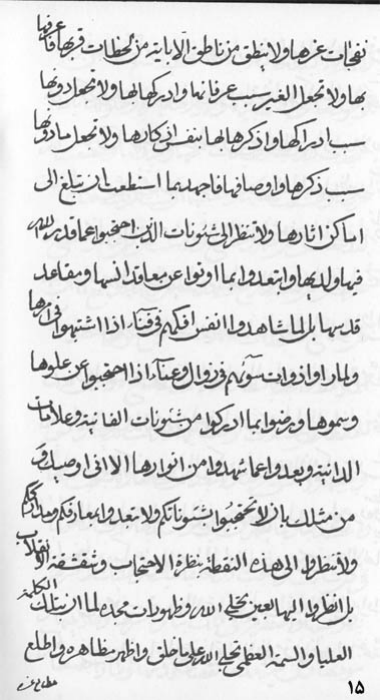 نفحات عزها ولا ينطق من ناطق الا باية من لحظات قربها فاعرفها
بها ولا تجعل الغير سبب عرفانها وادركها بها ولا تجعل دونها
سبب ادراكها واذكرها لها بنفس اذكارها ولا تجعل مادونها
سبب ذكرها واوصافها فاجهد بما استطعت ان تبلغ الى
اماكن اثارها ولا تنظر الى شئونات الذين احتجبوا عما قدر الله
فيها ولديها وابتعدوا بما اوتوا عن معاقد انسها ومقاعد
قدسها بل لما شاهدوا انفس افكهم فى فناء اذا اشتبهوا فى امرها
ولما راوا ذوات سوئهم فى زوال وعناء اذا احتجبوا عن علوها
وسموها ورضوا بما ادركوا من شئونات الفانية وعلامات
الداثية وبعدوا عما شهدوا من انوارها الا انى اوصيك ومن
من مثلك بان لا تحتجبوا بشئوناتكم ولا تبعدوا بمعارفكم
ولا تنظروا الى هذه النقطة بنظرة الاحتجاب و
بل انظروا اليها بعين تجلى الله وظهورات مجده لما ان بتلك الكلمة
العليا والسمة العظمى تجلى الله على ما خلق واظهر مظاهره واطلع
۱۵